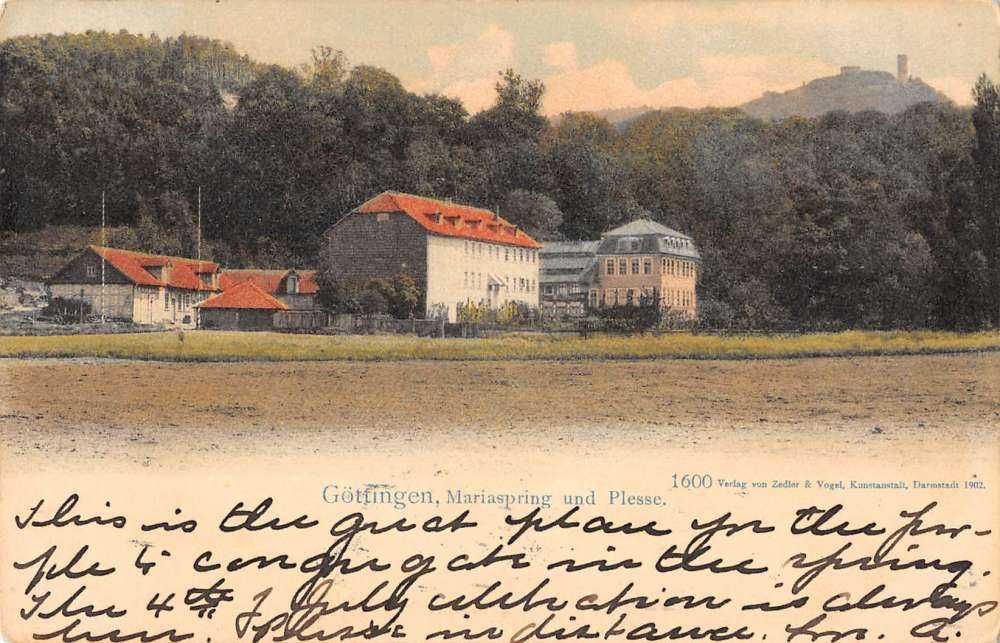 Göttingen, Mariaspring und Plesse.
1600 Verlag von Zedler & Vogel, Kunstanstalt, Darmstadt 1902.
This is the great place for the peo-
ple to congregate in the spring.
The 4th of July celebration is always
here. Plesse in distance.